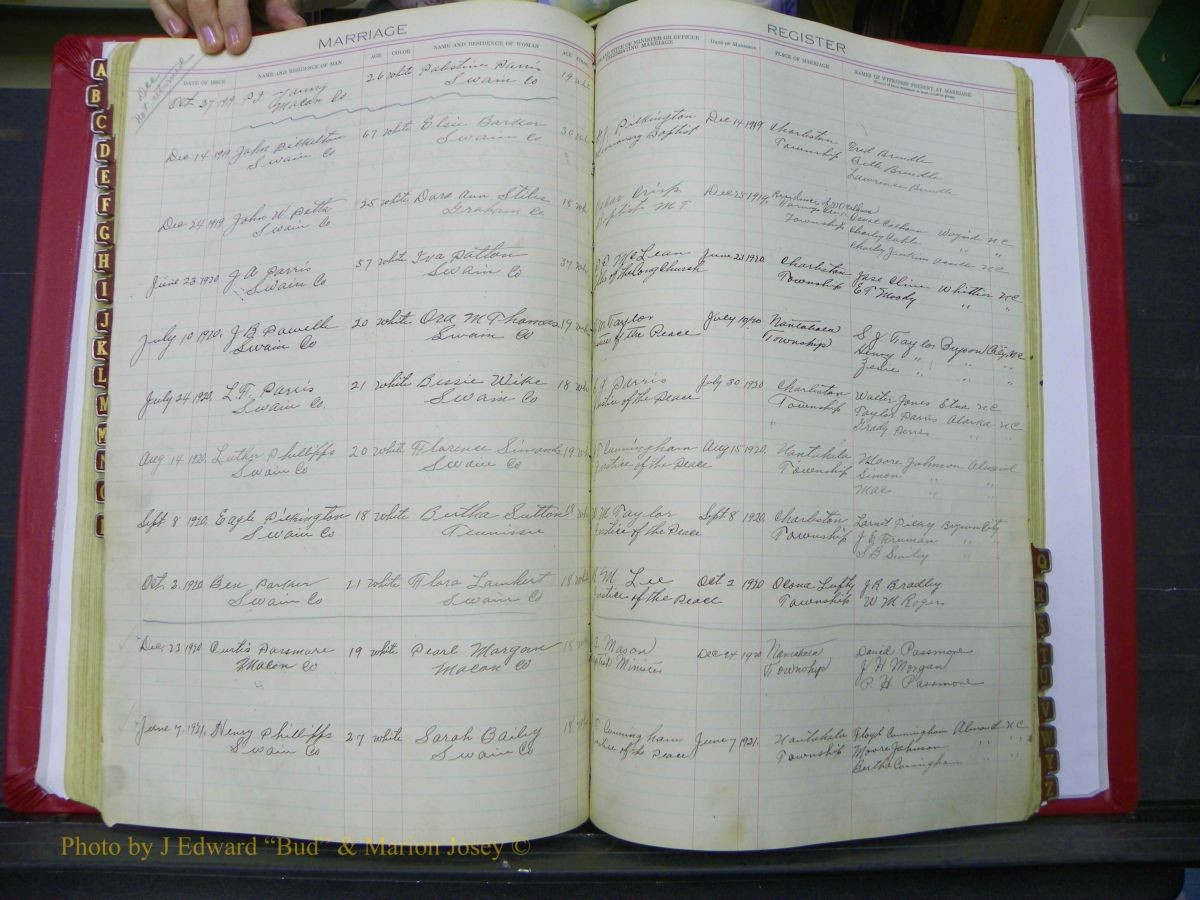 MARRIAGE
DATE OF ISSUE NAME AND RESIDENCE OF MAN AGE COLOR NAME AND RESIDENCE OF WOMAN AGE
not returned
Oct. 27 1919 P J Young 26 white Palestine Parris 19
Macon Co Swain Co
Dec 14 1919 John Pilkelton 67 white Elsie Barker 30
Swain Co Swain Co
Dec 24 1919 John W Potts 25 white Dora Ann Stiles 18
Swain Co Graham Co
June 23 1920 J A Parris 57 white Iva Patton 37
Swain Co Swain Co
July 10 1920. J B Powelle 20 white Ora M Thomas 19
Swain Co Swain Co
July 24 1920. L.F. Parris 21 white Bessie Wike 18
Swain Co. Swain Co
Aug 14 1920. Luther Phillipps 20 white Florence Simonds 19
Swain Co Swain Co
Sept 8 1920. Eagle Pilkington 18 white Bertha Sutton 18
Swain Co Tennissee
Oct. 2. 1920 Ben Parker 21 white Flora Lambert 18
Swain Co Swain Co
Dec. 23 1920 Curtis Passmore 19 white Pearl Morgan 18
Macon Co Macon Co
June 7. 1921. Henry Phillipps 27 white Sarah Baily 18
Swain Co Swain Co
REGISTER
TITLE OF MINISTER OR OFFICER CELEBRATING MARRIAGE DATE OF MARRIAGE PLACE OF MARRIAGE NAMES OF WITNESSES PRESENT AT MARRIAGE
Pilkington Dec 14 1919 Charleston Fred Brendle
Baptist Township Belle Brendle
Lawrence Brendle
Crisp Dec 25 1919,
Baptist Township Charley Cable
June 23 1920 Charleston Jase Cline Whittier N C
of the Church Township E T Mosdy " "
Taylor July 10/20 Nantahala S J Taylor Bryson City, N C
of the Peace Township Henry " " "
Parris July 30 1920 Charleston Walter Jones Etna N C
of the Peace Township Taylor Parris Alarka N C
Grady Parris " "
Cunningham Aug 15 1920. Nantahala Moore Johnson Almond
of the Peace Township Simon " "
Mac " "
Taylor Sept 8 1920. Charleston Bryson City
of the Peace Township
M Lee Oct 2 1920 Ocona Lufty J R Bradley
of the Peace Township W M Rogers
Mason Dec 24 1920 Nantahala David Passmore
Minister Township J H Morgan
P. H Passmore
Cunningham June 7 1921. Nantahala Floyd Cunningham Almond N C
of the Peace Township Moore Johnson " "
Bertha Cunningham " "
A
B
C
D
E
F
G
H
I
J
K
L
M
M
N
O
Q
R
S
T
U
V
W
Y
Z
Photo by J Edward “Bud” & Marion Josey ©